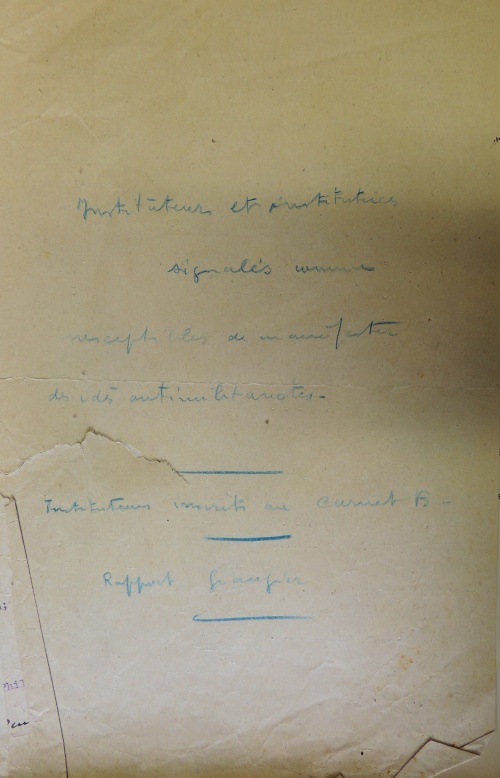 Instituteurs et institutrices
signalés comme
susceptibles de manifester
des idés antimilitaristes.
Instituteurs inscrits au Carnet B -
Rapport